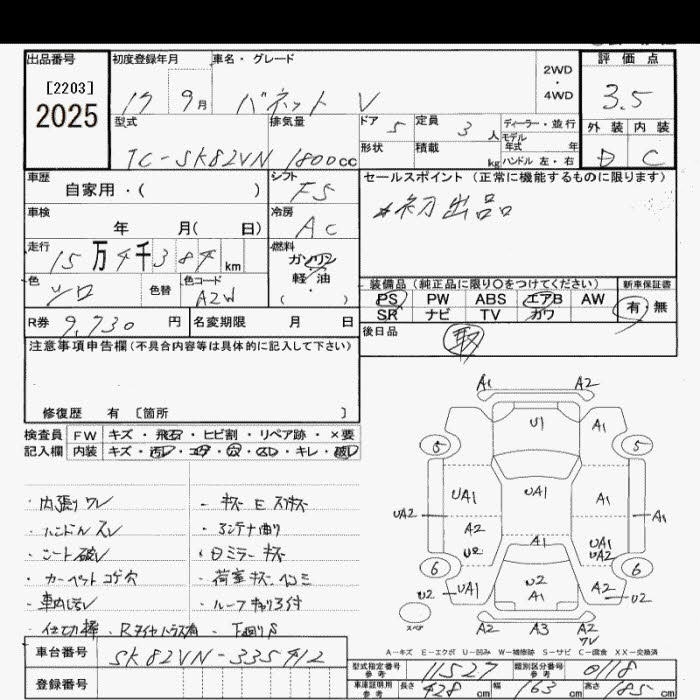 出品番号 初度登録年月 車名・グレード 評価点
[2203]
2025
17 9月 バネット V
2WD
・
4WD
3.5
型式 排気量 ドア 5 定員 3人 ディーラー・並行
モデル年式 年
外装 内装
TC-SK82VN 1800cc 形状 積載 kg ハンドル 左・右
D C
車歴 シフト セールスポイント(正常に機能するものに限ります)
自家用・( ) F5
初出品
車検 冷房
年 月( 日) AC
走行 燃料
15万4千384km ガソリン
軽・油
( )
色 色替 色コード 装備品(純正品に限り○をつけてください) 新車保証書
シロ A2W PS PW ABS エアB AW 有・無
SR ナビ TV カワ
R券 9,730円 名変期限 月 日 後日品
取
注意事項申告欄(不具合内容等は具体的に記入して下さい)
修復歴 有 〔箇所 〕
検査員 FW キズ・飛石・ヒビ割・リペア跡・×要
記入欄 内装 キズ・汚レ・コゲ・穴・スレ・キレ・破レ
A1 A2
U1 A1
5 5
UA1 UA1 A1
UA2 A1
A2 A1 UA1
U2 UA2
6 6
U2 UA1 U2 A2 U2
A1
スペア A2 A3 A2
ワレ
・内張りワレ ・キズ E スリキズ
・ハンドルスレ ・アンテナ曲り
・シート破レ ・Dミラーキズ
・カーペットコゲ穴 ・荷室キズヘコミ
・車内汚レ ・ルーフキャリア付
・仕切棒 ・Rタイヤハウス有 ・下廻りS
A-キズ E-エクボ U-凹み W-補修跡 S-サビ C-腐食 XX-交換済
車台番号 SK82VN-335412
型式指定番号 参考 11527 類別区分番号 参考 0118
登録番号
車庫証明用 参考 長さ 428cm 幅 163cm 高さ 185cm